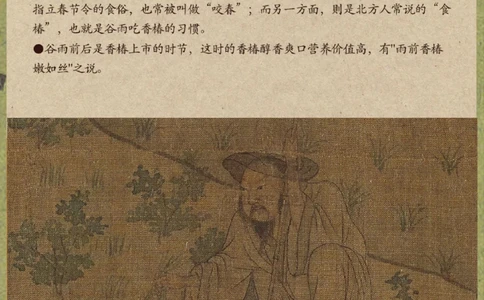 指立春节令的食俗，也常被叫做“咬春”；而另一方面，则是北方人常说的“食
椿”，也就是谷雨吃香椿的习惯。
●谷雨前后是香椿上市的时节，这时的香椿醇香爽口营养价值高，有"雨前香椿
嫩如丝"之说。